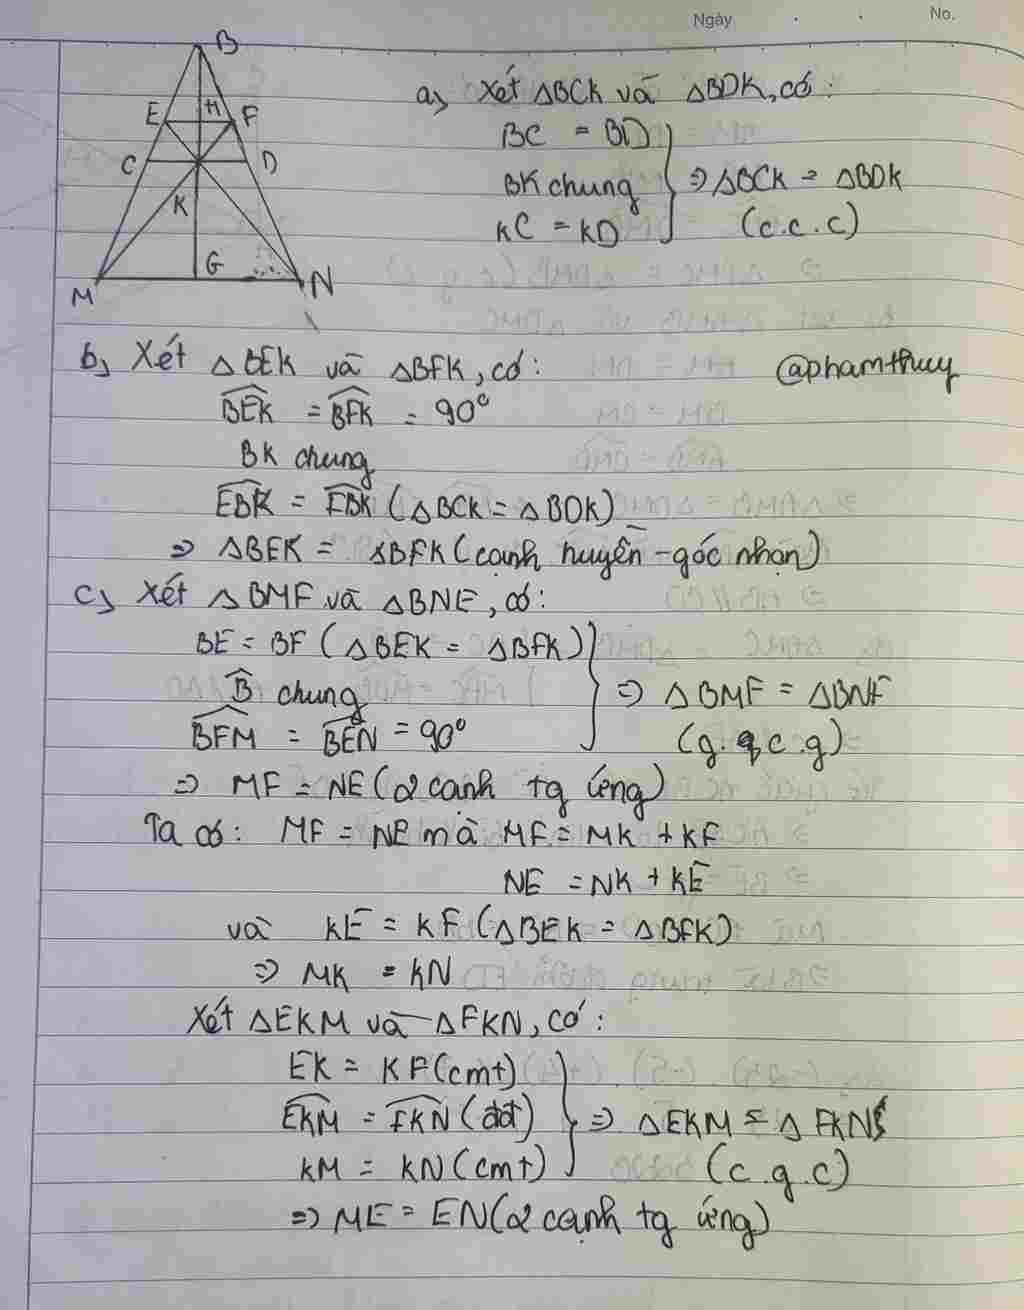 Ngày
No.
B
E H F
C D
K
G
M N
a, Xét ΔBCK và ΔBDK, có:
BC = BD
BK chung ⇒ ΔBCK = ΔBDK
KC = KD (c.c.c)
b, Xét ΔBEK và ΔBFK, có:
@phamthuy
BEK = BFK = 90°
BK chung
EBK = FBK (ΔBCK = ΔBDK)
⇒ ΔBEK = ΔBFK (cạnh huyền - góc nhọn)
c, Xét ΔBMF và ΔBNE, có:
BE = BF (ΔBEK = ΔBFK)
B chung ⇒ ΔBMF = ΔBNF
BFM = BEN = 90° (g. c.g)
⇒ MF = NE (2 cạnh tg ứng)
Ta có: MF = NE mà MF = MK + KF
NE = NK + KE
và KE = KF (ΔBEK = ΔBFK)
⇒ MK = KN
Xét ΔEKM và ΔFKN, có:
EK = KF (cmt)
EKM = FKN (đđ) ⇒ ΔEKM = ΔFKN
KM = KN (cmt) (c.g.c)
⇒ ME = EN (2 cạnh tg ứng)